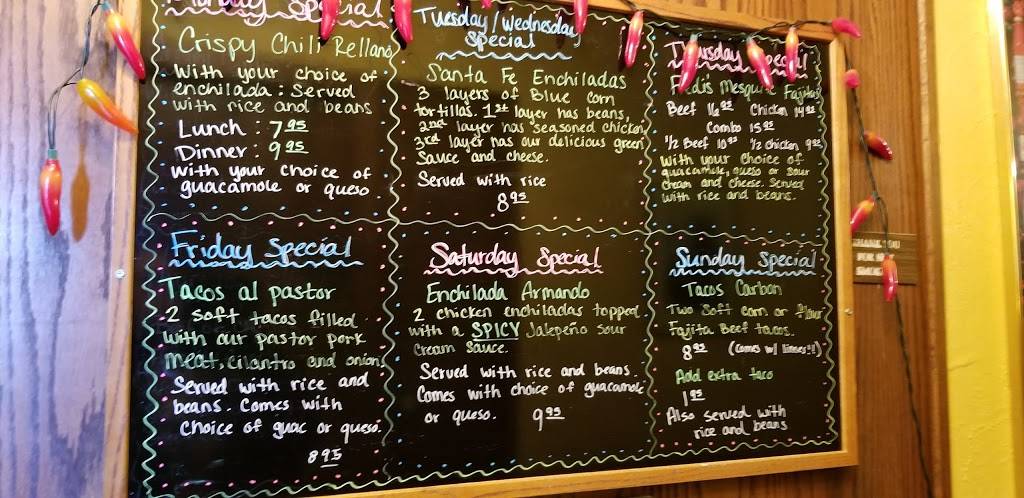 Monday Special
Crispy Chili Rellano
With your choice of
enchilada: Served
with rice and beans
Lunch: 7.95
Dinner: 9.95
With your choice of
guacamole or queso
Tuesday/Wednesday
Special
Santa Fe Enchiladas
3 layers of Blue Corn
tortillas. 1st layer has beans,
2nd layer has seasoned chicken,
3rd layer has our delicious green
Sauce and cheese.
Served with rice
8.95
Thursday Special
Mesquite Fajitas
Beef 16.95 Chicken 14.95
Combo 15.95
1/2 Beef 10.95 1/2 chicken 9.95
With your choice of
guacamole, queso or sour
cream and cheese. Served
with rice and beans.
Friday Special
Tacos al pastor
2 soft tacos filled
with our pastor pork
meat, cilantro and onions
Served with rice and
beans. Comes with
choice of guac or queso.
8.95
Saturday Special
Enchilada Armando
2 chicken enchiladas topped
with a SPICY Jalepeño sour
Cream Sauce.
Served with rice and beans.
Comes with choice of guacamole
or queso. 9.95
Sunday Special
Tacos Carbon
Two Soft corn or flour
Fajita Beef tacos.
8.95 (Comes w/ limes!!)
Add extra taco
1.95
Also served with
rice and beans
THANK YOU